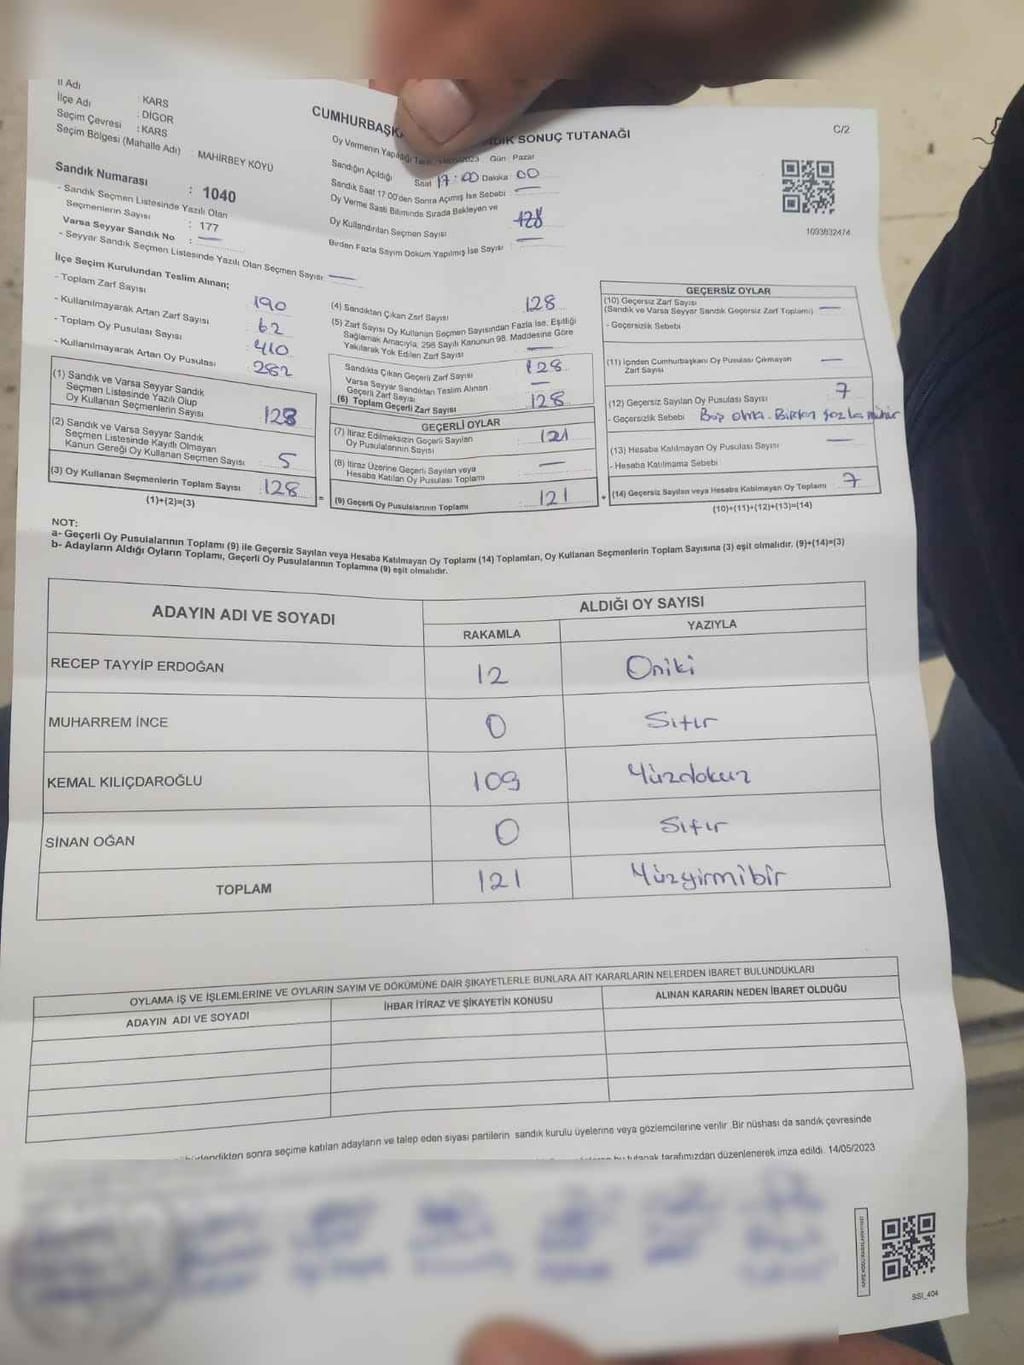 İl Adı : KARS
İlçe Adı : DİGOR
Seçim Çevresi : KARS
Seçim Bölgesi (Mahalle Adı) : MAHİRBEY KÖYÜ
Sandık Numarası : 1040
- Sandık Seçmen Listesinde Yazılı Olan
Seçmenlerin Sayısı : 177
Varsa Seyyar Sandık No : —
- Seyyar Sandık Seçmen Listesinde Yazılı Olan Seçmen Sayısı —
CUMHURBAŞK SONUÇ TUTANAĞI
C/2
Oy Vermenin Yapıldığı 2023 Gün Pazar
Sandığın Açıldığı Saat 17:00 Dakika 00
Sandık Saat 17.00'den Sonra Açılmış İse Sebebi —
Oy Verme Saati Bitiminde Sırada Bekleyen ve
Oy Kullandırılan Seçmen Sayısı 128
Birden Fazla Sayım Döküm Yapılmış İse Sayısı —
1093832474
İlçe Seçim Kurulundan Teslim Alınan;
- Toplam Zarf Sayısı 190
- Kullanılmayarak Artan Zarf Sayısı 62
- Toplam Oy Pusulası Sayısı 410
- Kullanılmayarak Artan Oy Pusulası 282
(1) Sandık ve Varsa Seyyar Sandık
Seçmen Listesinde Yazılı Olup
Oy Kullanan Seçmenlerin Sayısı 123
(2) Sandık ve Varsa Seyyar Sandık
Seçmen Listesinde Kayıtlı Olmayan
Kanun Gereği Oy Kullanan Seçmen Sayısı 5
(3) Oy Kullanan Seçmenlerin Toplam Sayısı 128
(1)+(2)=(3)
(4) Sandıktan Çıkan Zarf Sayısı 128
(5) Zarf Sayısı Oy Kullanan Seçmen Sayısından Fazla İse, Eşitliği
Sağlamak Amacıyla, 298 Sayılı Kanunun 98. Maddesine Göre
Yakılarak Yok Edilen Zarf Sayısı —
Sandıkta Çıkan Geçerli Zarf Sayısı 128
Varsa Seyyar Sandıktan Teslim Alınan
Geçerli Zarf Sayısı —
(6) Toplam Geçerli Zarf Sayısı 128
GEÇERLİ OYLAR
(7) İtiraz Edilmeksizin Geçerli Sayılan
Oy Pusulalarının Sayısı 121
(8) İtiraz Üzerine Geçerli Sayılan veya
Hesaba Katılan Oy Pusulası Toplamı —
(9) Geçerli Oy Pusulalarının Toplamı 121
GEÇERSİZ OYLAR
(10) Geçersiz Zarf Sayısı
(Sandık ve Varsa Seyyar Sandık Geçersiz Zarf Toplamı) —
- Geçersizlik Sebebi
(11) İçinden Cumhurbaşkanı Oy Pusulası Çıkmayan
Zarf Sayısı —
(12) Geçersiz Sayılan Oy Pusulası Sayısı 7
- Geçersizlik Sebebi Boş olma. Birden fazla mühür
(13) Hesaba Katılmayan Oy Pusulası Sayısı —
- Hesaba Katılmama Sebebi
(14) Geçersiz Sayılan veya Hesaba Katılmayan Oy Toplamı 7
(10)+(11)+(12)+(13)=(14)
NOT:
a- Geçerli Oy Pusulalarının Toplamı (9) ile Geçersiz Sayılan veya Hesaba Katılmayan Oy Toplamı (14) Toplamları, Oy Kullanan Seçmenlerin Toplam Sayısına (3) eşit olmalıdır. (9)+(14)=(3)
b- Adayların Aldığı Oyların Toplamı, Geçerli Oy Pusulalarının Toplamına (9) eşit olmalıdır.
ADAYIN ADI VE SOYADI ALDIĞI OY SAYISI
RAKAMLA YAZIYLA
RECEP TAYYİP ERDOĞAN 12 Oniki
MUHARREM İNCE 0 Sıfır
KEMAL KILIÇDAROĞLU 109 Yüzdokuz
SİNAN OĞAN 0 Sıfır
TOPLAM 121 Yüzyirmibir
OYLAMA İŞ VE İŞLEMLERİNE VE OYLARIN SAYIM VE DÖKÜMÜNE DAİR ŞİKAYETLERLE BUNLARA AİT KARARLARIN NELERDEN İBARET BULUNDUKLARI
ADAYIN ADI VE SOYADI İHBAR İTİRAZ VE ŞİKAYETİN KONUSU ALINAN KARARIN NEDEN İBARET OLDUĞU
sonra seçime katılan adayların ve talep eden siyasi partilerin sandık kurulu üyelerine veya gözlemcilerine verilir. Bir nüshası da sandık çevresinde
bu tutanak tarafımızdan düzenlenerek imza edildi. 14/05/2023
SSI_404